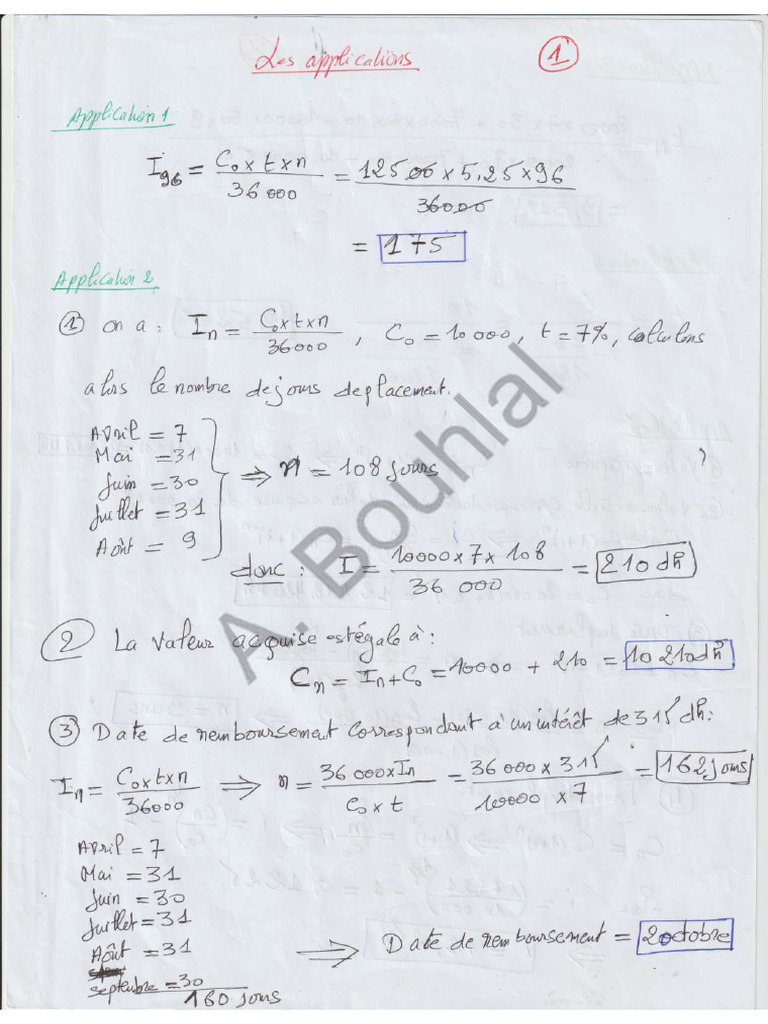 Les applications 1
Application 1
I₉₆ = C₀ x t x n / 36 000 = 12500 x 5,25 x 96 / 36000
= 175
Application 2
① on a : Iₙ = C₀ x t x n / 36000 , C₀ = 10 000 , t = 7%, calculons
alors le nombre de jours de placement.
Avril = 7
Mai = 31
Juin = 30
Juillet = 31
Août = 9
⇒ n = 108 jours
donc : I = 10000 x 7 x 108 / 36 000 = 210 dh
② La valeur acquise est égale à :
Cₙ = Iₙ + C₀ = 10000 + 210 = 10 210 dh
③ Date de remboursement correspondant à un intérêt de 315 dh :
Iₙ = C₀ x t x n / 36000 ⇒ n = 36 000 x Iₙ / C₀ x t = 36 000 x 315 / 10000 x 7 = 162 jours
Avril = 7
Mai = 31
Juin = 30
Juillet = 31
Août = 31
septembre = 30
160 jours
⇒ Date de remboursement = 2 octobre
A. Bouhlal